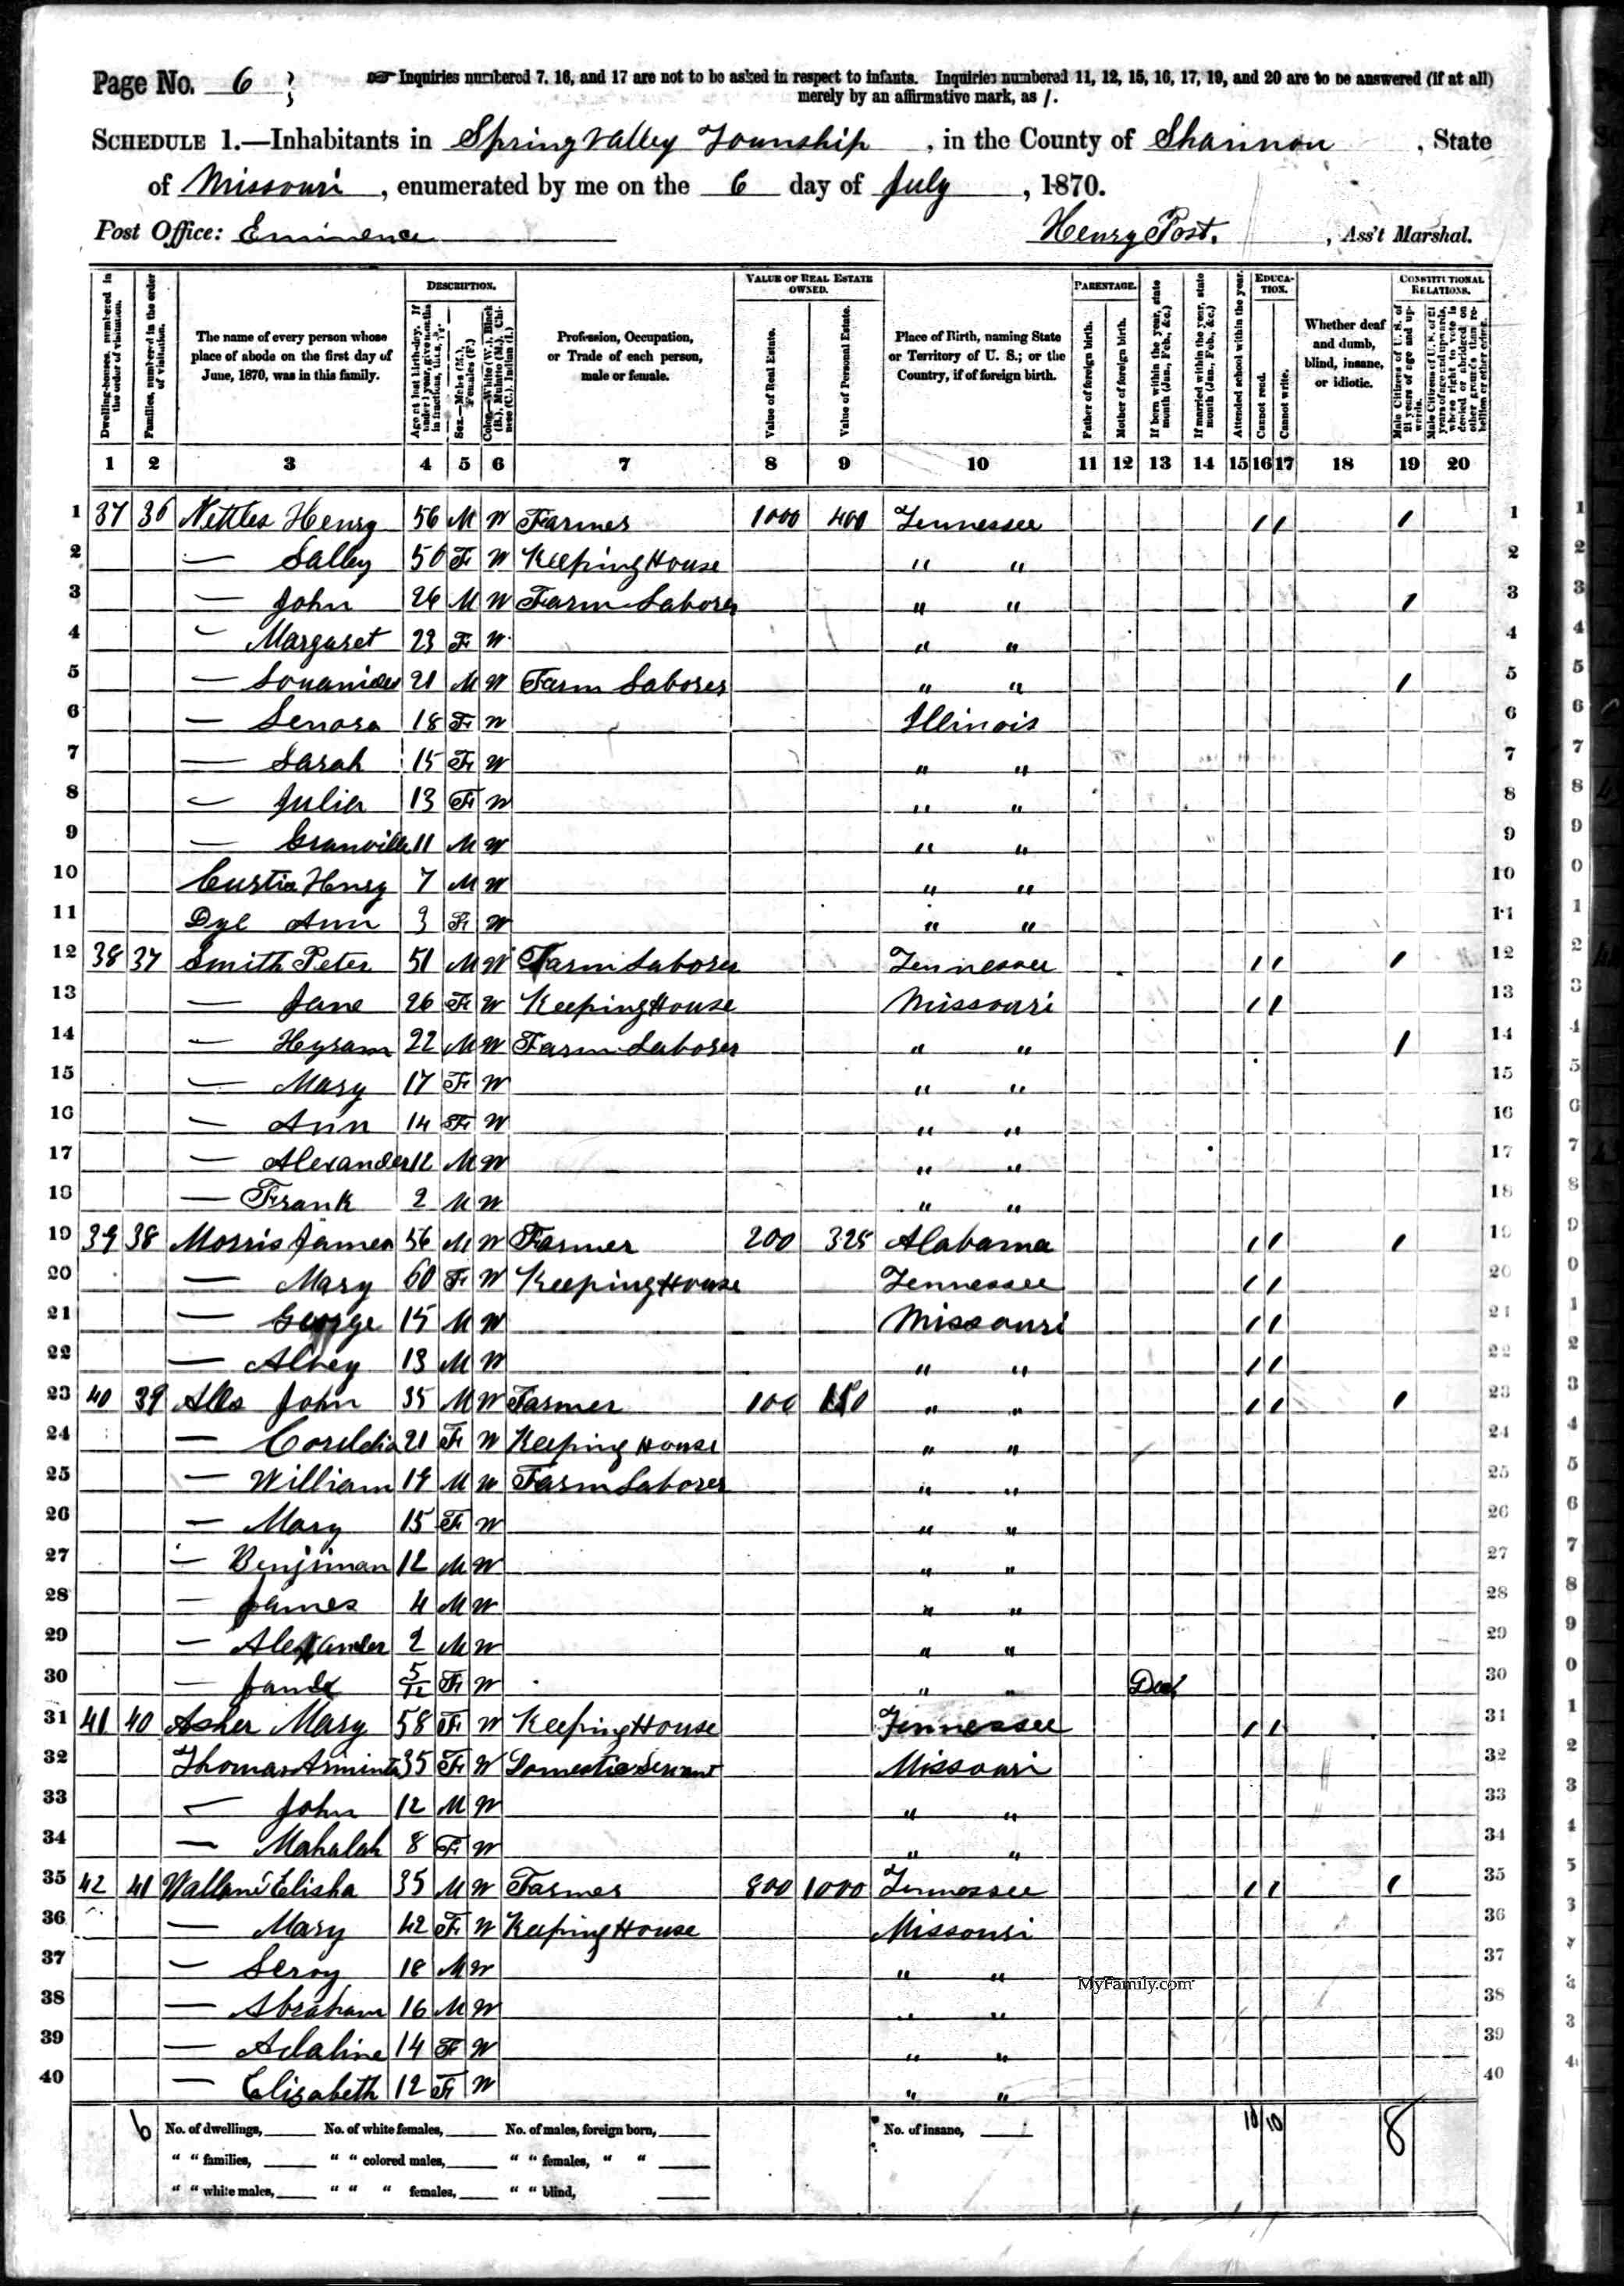 Page No. 6
☞ Inquiries numbered 7, 16, and 17 are not to be asked in respect to infants. Inquiries numbered 11, 12, 15, 16, 17, 19, and 20 are to be answered (if at all)
merely by an affirmative mark, as /.
SCHEDULE 1.—Inhabitants in Spring Valley Township, in the County of Shannon, State
of Missouri, enumerated by me on the 6 day of July, 1870.
Post Office: Eminence Henry Post, Ass't Marshal.
DESCRIPTION. VALUE OF REAL ESTATE OWNED. PARENTAGE. EDUCATION. CONSTITUTIONAL RELATIONS.
Dwelling-houses, numbered in the order of visitation.
Families, numbered in the order of visitation.
The name of every person whose place of abode on the first day of June, 1870, was in this family.
Age at last birth-day. If under 1 year, give months in fractions, thus, 3/12.
Sex.—Males (M.), Females (F.)
Color.—White (W.), Black (B.), Mulatto (M.), Chinese (C.), Indian (I.)
Profession, Occupation, or Trade of each person, male or female.
Value of Real Estate.
Value of Personal Estate.
Place of Birth, naming State or Territory of U. S.; or the Country, if of foreign birth.
Father of foreign birth.
Mother of foreign birth.
If born within the year, state month (Jan., Feb., &c.)
If married within the year, state month (Jan., Feb., &c.)
Attended school within the year.
Cannot read.
Cannot write.
Whether deaf and dumb, blind, insane, or idiotic.
Male Citizens of U. S. of 21 years of age and upwards.
Male Citizens of U. S. of 21 years of age and upwards, where right to vote is denied or abridged on other grounds than rebellion or other crime.
1 2 3 4 5 6 7 8 9 10 11 12 13 14 15 16 17 18 19 20
1 37 36 Nettles Henry 56 M W Farmer 1000 400 Tennessee / / / 1
2 — Salley 50 F W Keeping House " " 2
3 — John 26 M W Farm Laborer " " / 3
4 — Margaret 23 F W " " 4
5 — 21 M W Farm Laborer " " / 5
6 — Lenora 18 F W Illinois 6
7 — Sarah 15 F W " " 7
8 — Julia 13 F W " " 8
9 — Granville 11 M W " " 9
10 Curtis Henry 7 M W " " 10
11 Dye Ann 3 F W " " 11
12 38 37 Smith Peter 51 M W Farm Laborer Tennessee / / / 12
13 — Jane 26 F W Keeping House Missouri / / 13
14 — Hyram 22 M W Farm Laborer " " / 14
15 — Mary 17 F W " " 15
16 — Ann 14 F W " " 16
17 — Alexander 12 M W " " 17
18 — Frank 2 M W " " 18
19 39 38 Morris James 56 M W Farmer 200 325 Alabama / / / 19
20 — Mary 60 F W Keeping House Tennessee / / 20
21 — George 15 M W Missouri / / 21
22 — 13 M W " " / / 22
23 40 39 John 35 M W Farmer 100 150 " " / / / 23
24 — Coreldia 21 F W Keeping House " " 24
25 — William 19 M W Farm Laborer " " 25
26 — Mary 15 F W " " 26
27 — Benjiman 12 M W " " 27
28 — James 4 M W " " 28
29 — Alexander 2 M W " " 29
30 — 5/12 F W " " Dec 30
31 41 40 Asher Mary 58 F W Keeping House Tennessee / / 31
32 Thomas Arminta 35 F W Domestic Servant Missouri 32
33 — John 12 M W " " 33
34 — Mahalah 8 F W " " 34
35 42 41 Elisha 35 M W Farmer 800 1000 Tennessee / / / 35
36 — Mary 42 F W Keeping House Missouri 36
37 — Leroy 18 M W " " 37
38 — Abraham 16 M W " " 38
39 — Adaline 14 F W " " 39
40 — Elizabeth 12 F W " " 40
MyFamily.com
6 No. of dwellings, No. of white females, No. of males, foreign born, No. of insane, 10 10 8
" " families, " " colored males, " " females, " "
" " white males, " " " females, " " blind,